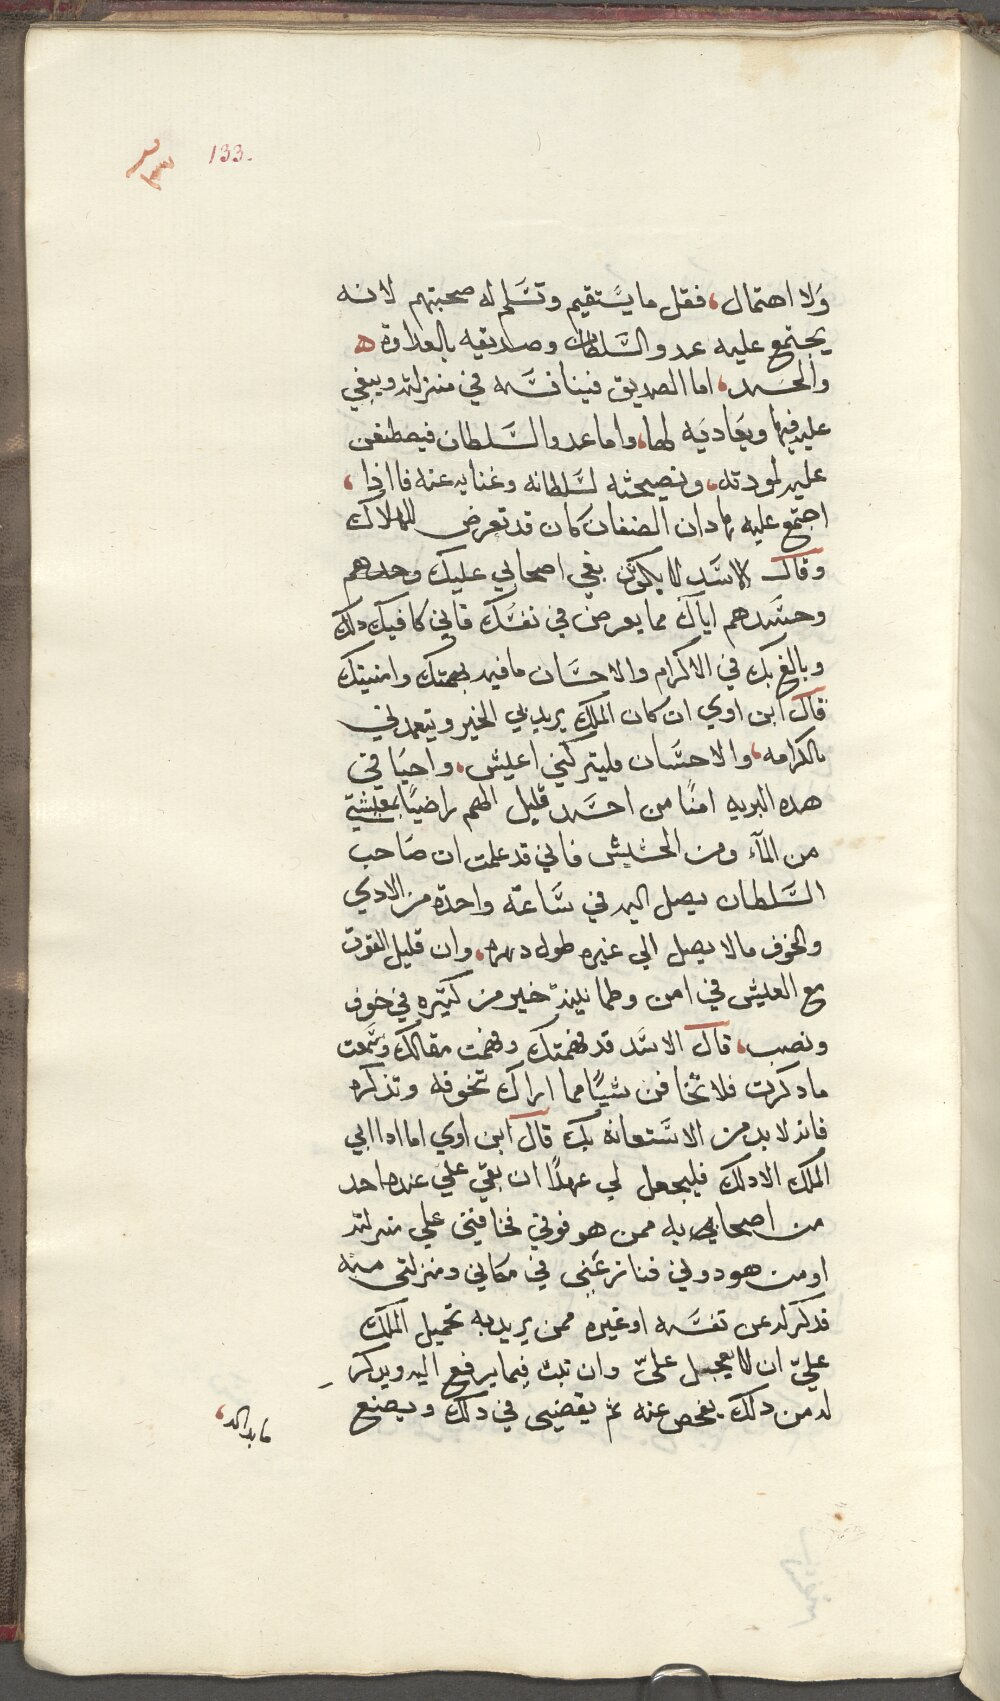 133.
ولا احتمال، فقل ما يستقيم وتسلم له صحبتهم لانه
يجتمع عليه عدو السلطان وصديقه بالعداوة ه
والحسد، اما الصديق فينافسه في منزلته ويبغي
عليه فيها ويعاديه لها، واما عدو السلطان فيضطغن
عليه لمودته، ونصيحته لسلطانه وغنايه عنه فااذا،
اجتمع عليه هادان الصنفان كان قد تعرض للهلاك
وقال الاسد لا يكونن بغي اصحابي عليك وحدهم
وحسدهم اياك مما يعرض في نفسك فاني كافيك دلك
وبالغ بك في الاكرام والاحسان ما فيه بهمتك وامنيتك
قال ابن اوي ان كان الملك يريد بي الخير ويتعمدني
بالكرامه، والاحسان فليتركني اعيش، واحيا في
هده البريه امنًا من احسد قليل الهم راضيًا بمعيشتي
من المآء ومن الحشيش فاني قد علمت ان صاحب
السلطان يصل اليه في ساعة واحدة من الادي
والخوف مالا يصل الي غيره طول دهره، وان قليل القوت
مع العيش في امن وطمانينة خير من كثيره في خوف
ونصب، قال الاسد قد فهمتك وفهمت مقالك وسمعت
ما دكرت فلا تخافن شيًا مما اراك تخوفه وتذكره
فانه لا بد من الاستعانة بك قال ابن اوي اما ادا ابي
الملك الا دلك فليجعل لي عهدًا ان بقي علي عنده احد
من اصحابي به ممن هو فوقي فخافني علي منزلته
او من هو دوني فنازعني في مكاني ومنزلتي منه
فدكر له عن نفسه او غيره ممن يريد به تحميل الملك
عليّ ان لا يعجل عليّ وان تبت فيما يرفع اليه ويدكر
له من دلك يفحص عنه ثم يقضيي في دلك ويصنع
ما بدا له،